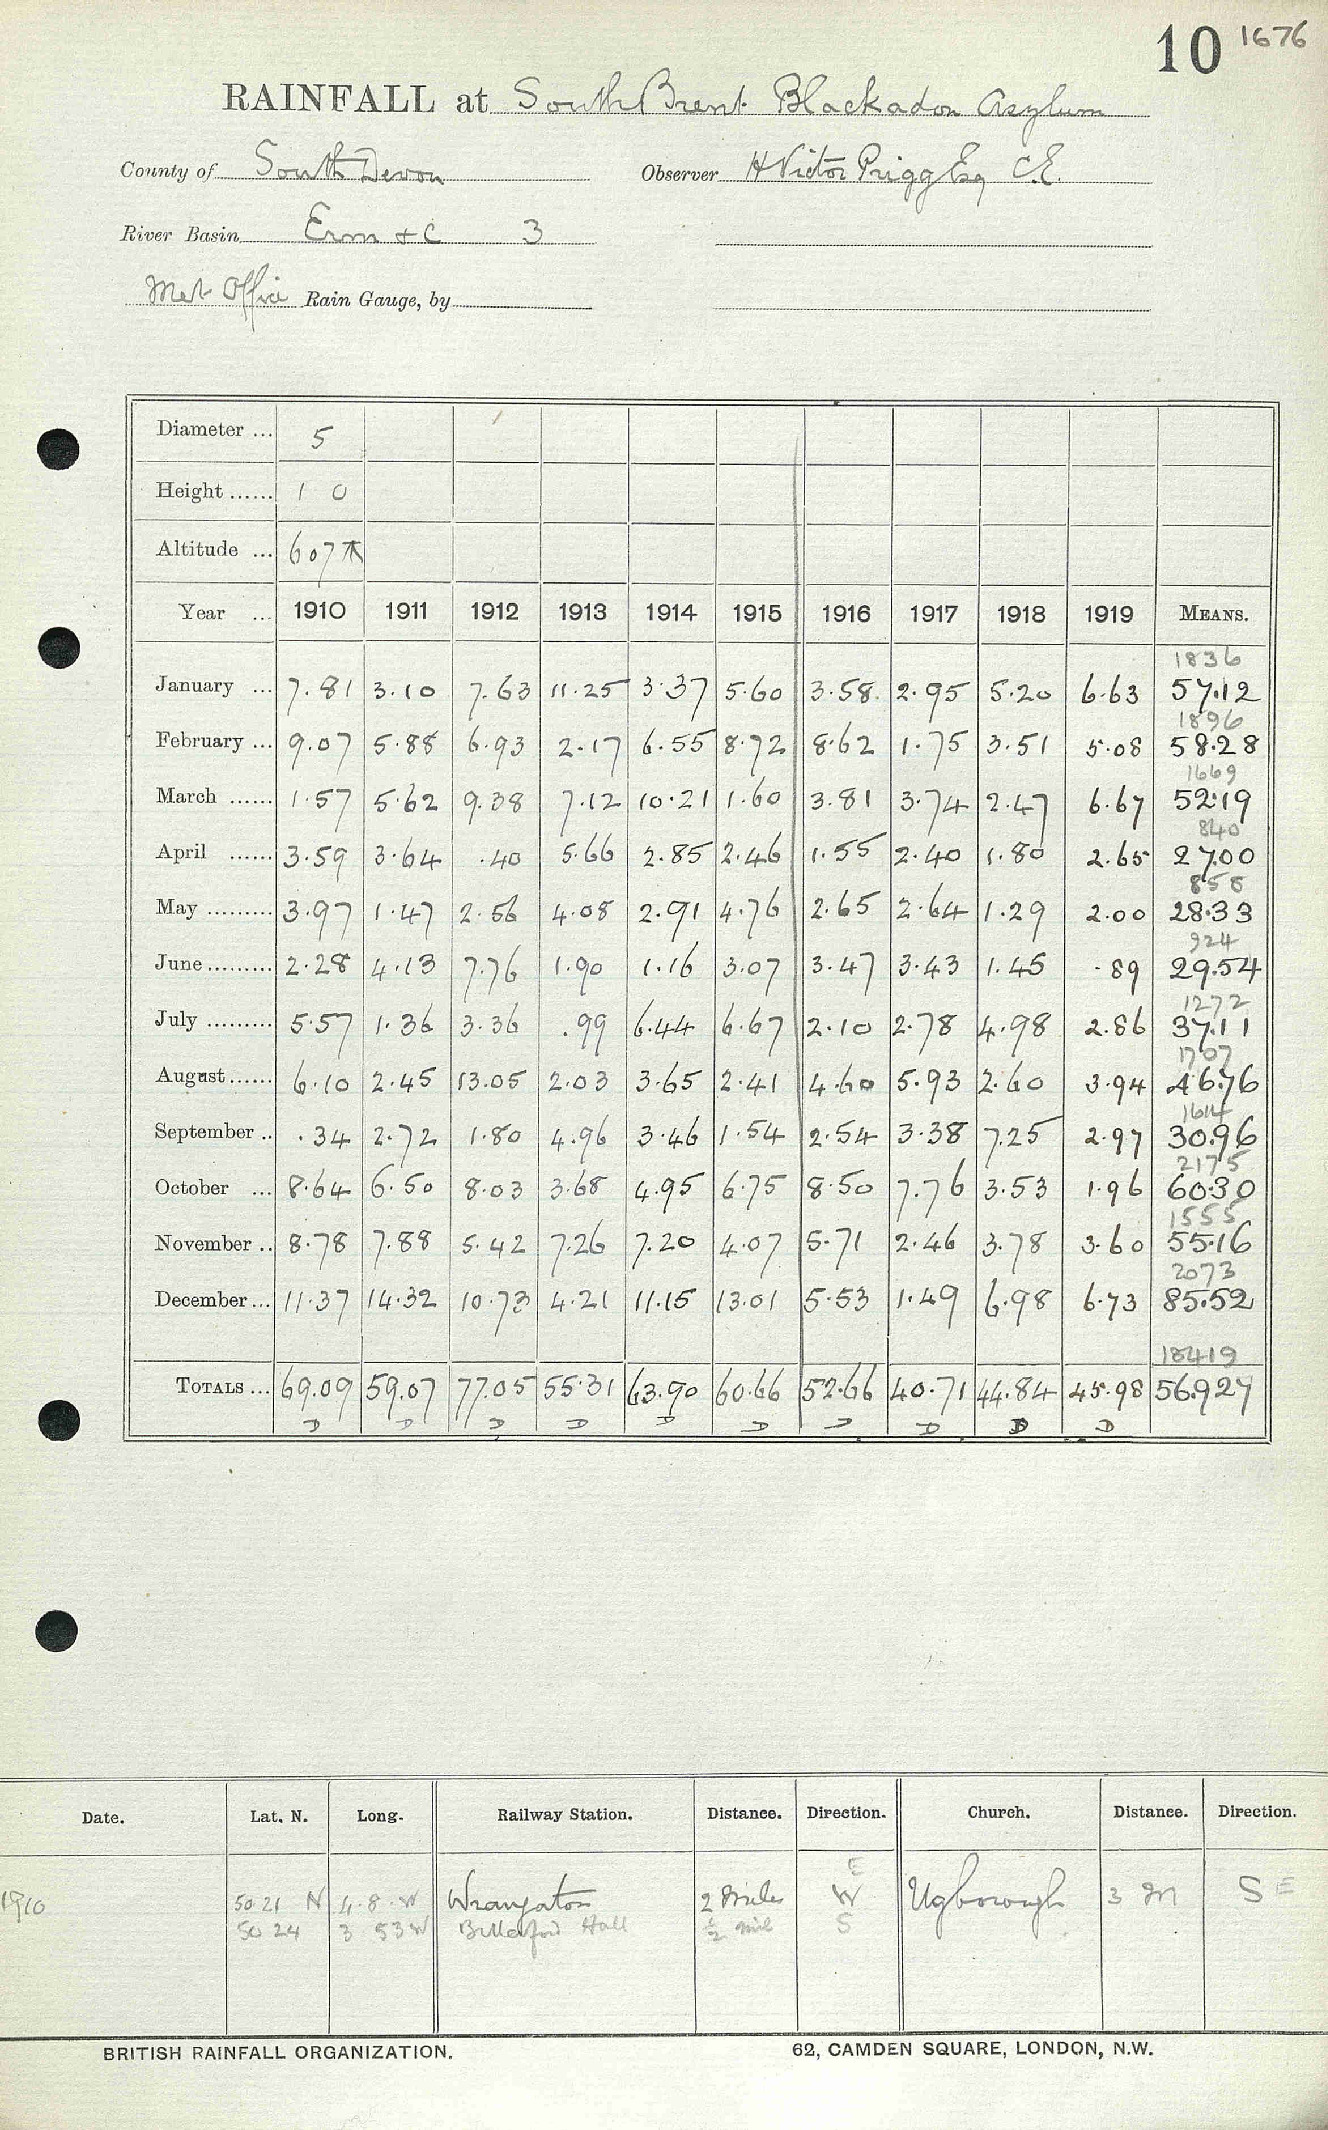 10 1676
RAINFALL at South Brent Blackadon Asylum
County of South Devon Observer H Victor Prigg Esq C.E.
River Basin Erm + C 3
Met Office Rain Gauge, by
Diameter ... 5
Height ...... 1 0
Altitude ... 607
Year ... 1910 1911 1912 1913 1914 1915 1916 1917 1918 1919 MEANS.
1836
January ... 7.81 3.10 7.63 11.25 3.37 5.60 3.58 2.95 5.20 6.63 57.12
1896
February ... 9.07 5.88 6.93 2.17 6.55 8.72 8.62 1.75 3.51 5.08 58.28
1669
March ...... 1.57 5.62 9.38 7.12 10.21 1.60 3.81 3.74 2.47 6.67 52.19
840
April ...... 3.59 3.64 .40 5.66 2.85 2.46 1.55 2.40 1.80 2.65 27.00
858
May ......... 3.97 1.47 2.56 4.08 2.91 4.76 2.65 2.64 1.29 2.00 28.33
924
June ......... 2.28 4.13 7.76 1.90 1.16 3.07 3.47 3.43 1.45 .89 29.54
1272
July ......... 5.57 1.36 3.36 .99 6.44 6.67 2.10 2.78 4.98 2.86 37.11
1707
August ...... 6.10 2.45 13.05 2.03 3.65 2.41 4.60 5.93 2.60 3.94 46.76
1614
September .. .34 2.72 1.80 4.96 3.46 1.54 2.54 3.38 7.25 2.97 30.96
2175
October ... 8.64 6.50 8.03 3.68 4.95 6.75 8.50 7.76 3.53 1.96 60.30
1555
November .. 8.78 7.88 5.42 7.26 7.20 4.07 5.71 2.46 3.78 3.60 55.16
2073
December ... 11.37 14.32 10.73 4.21 11.15 13.01 5.53 1.49 6.98 6.73 85.52
18419
TOTALS ... 69.09 59.07 77.05 55.31 63.90 60.66 52.66 40.71 44.84 45.98 56.927
D D D D D D D D D D
Date. Lat. N. Long. Railway Station. Distance. Direction. Church. Distance. Direction.
E
1910 50.21 N 4.8.W Wrangaton 2 Miles W Ugborough 3 M S E
50 24 3 53 W Hall ½ mile S
BRITISH RAINFALL ORGANIZATION. 62, CAMDEN SQUARE, LONDON, N.W.